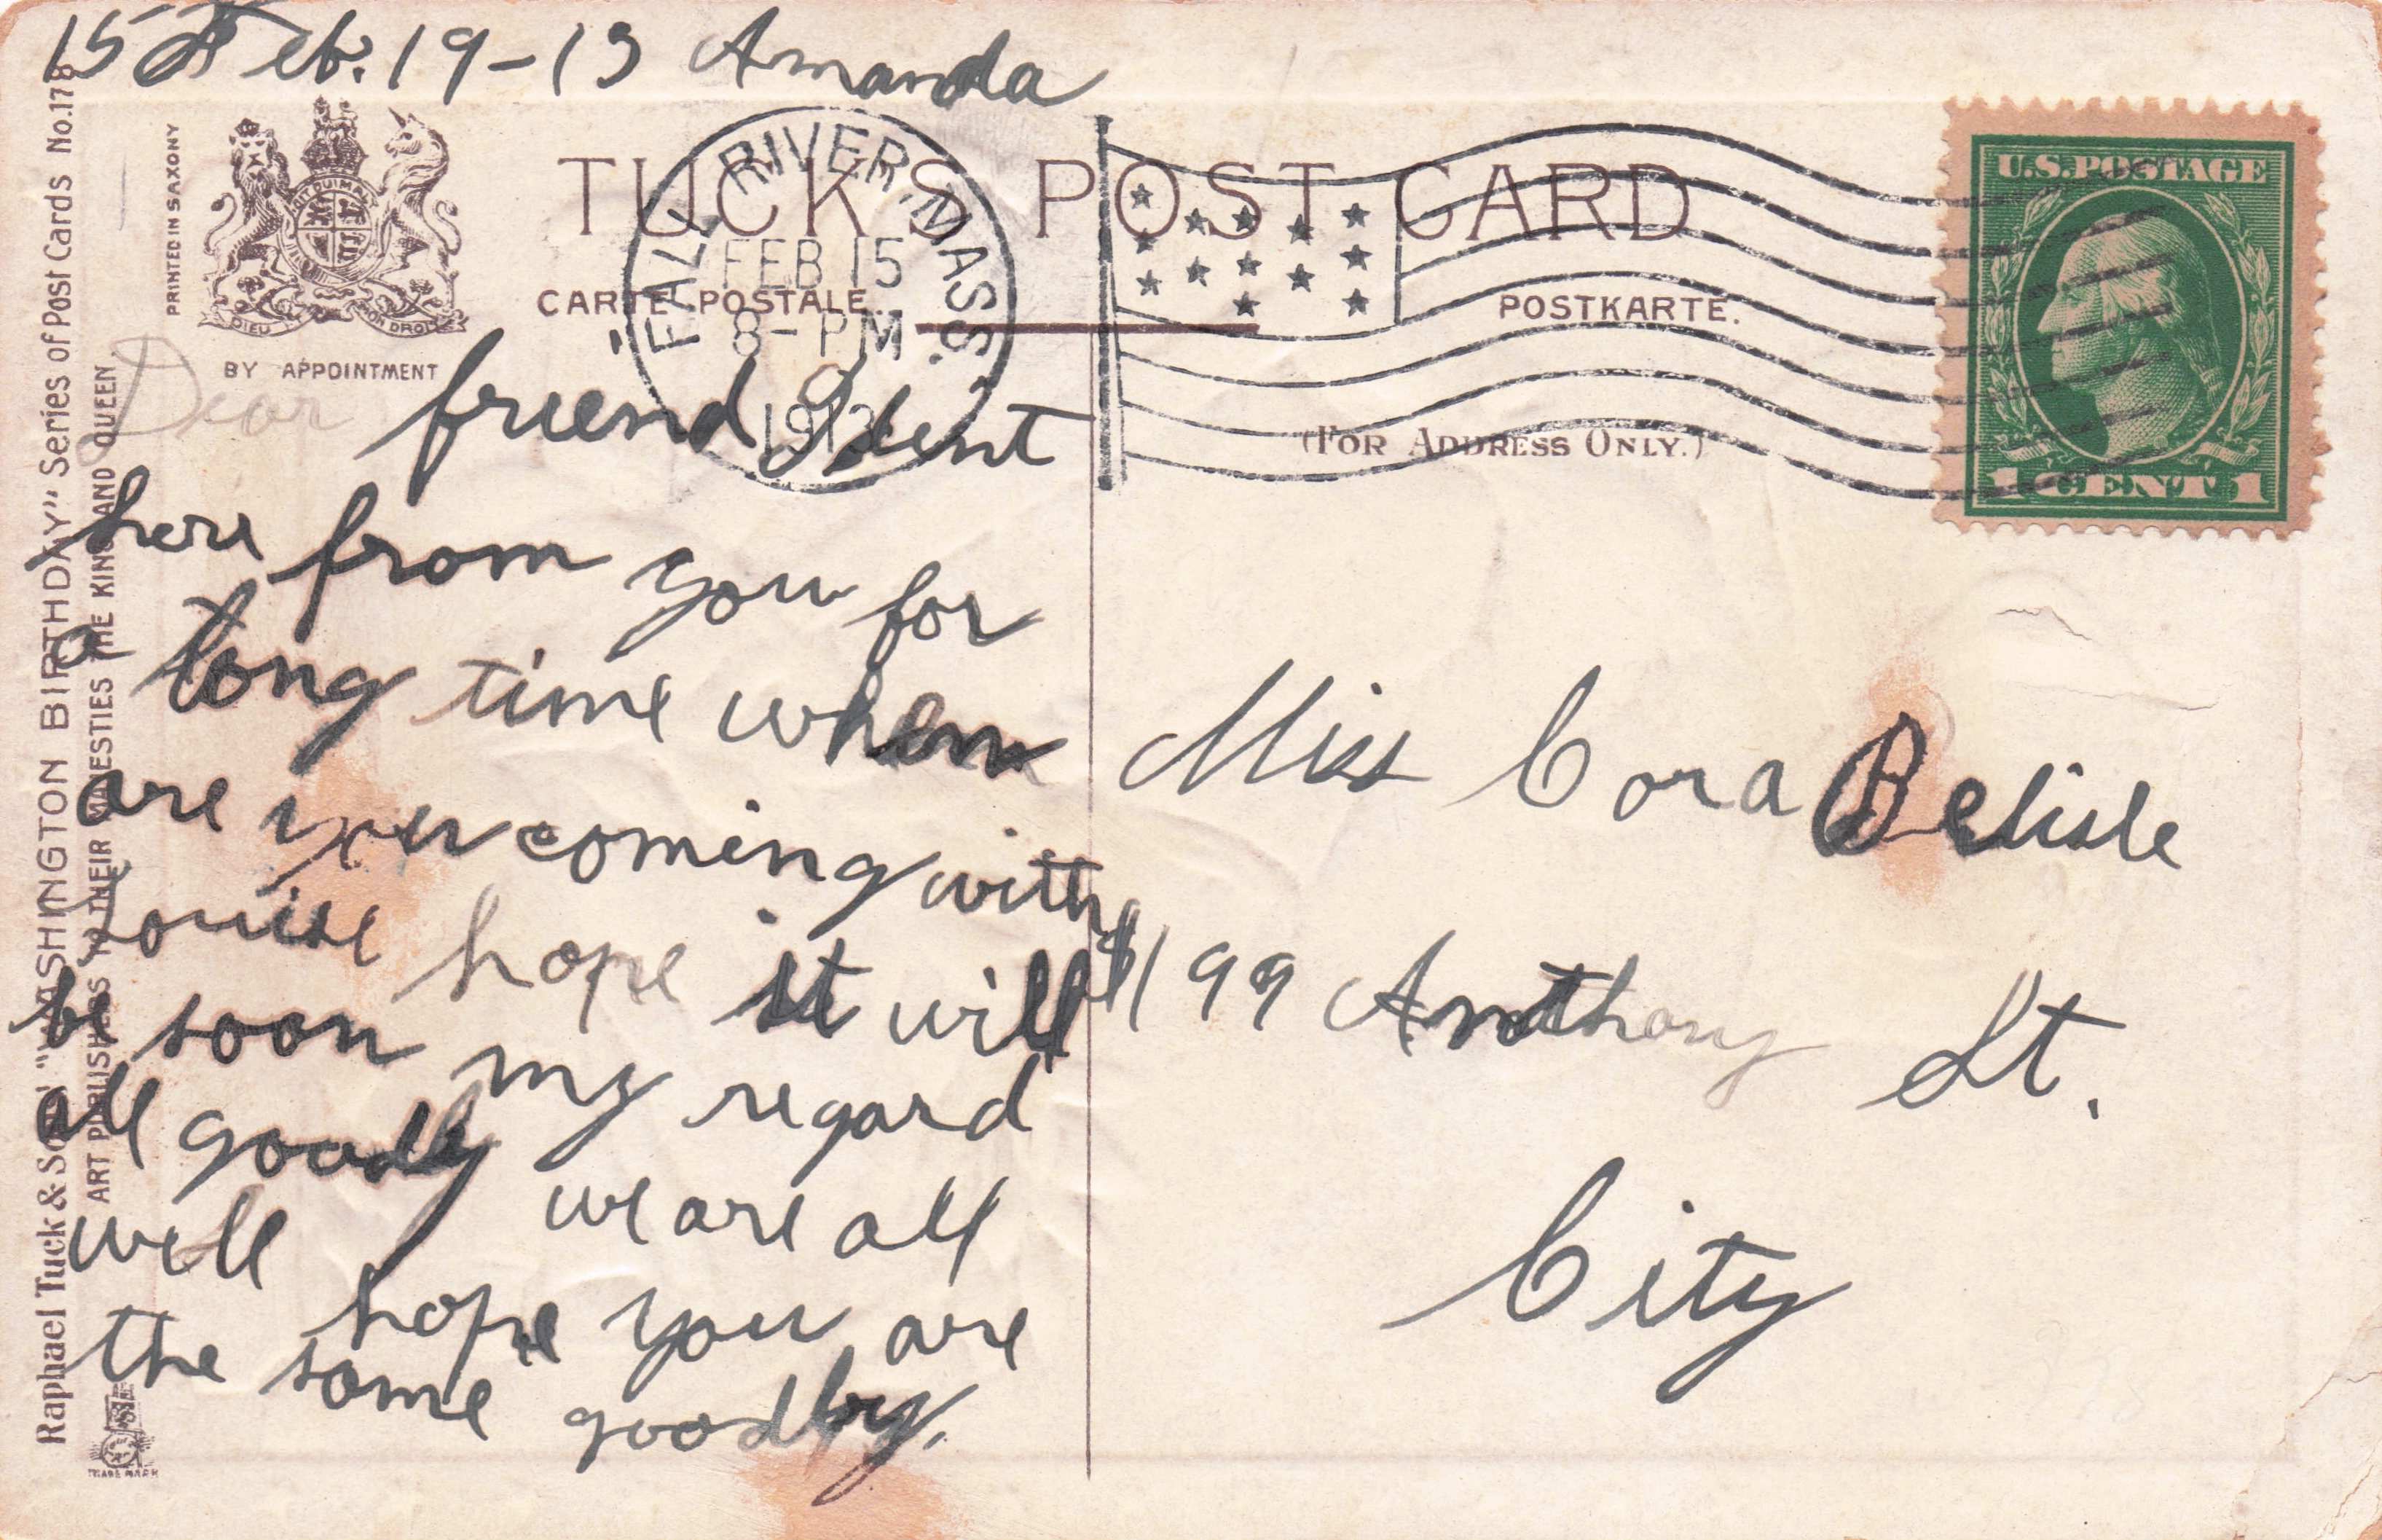 15 Feb. 19-13 Amanda
PRINTED IN SAXONY
DIEU ET MON DROIT
BY APPOINTMENT
TUCK'S POST CARD
CARTE POSTALE
POSTKARTE.
(FOR ADDRESS ONLY.)
FALL RIVER, MASS.
FEB 15
8 - PM
1913
U.S. POSTAGE
1 CENT 1
Raphael Tuck & Sons' "WASHINGTON BIRTHDAY" Series of Post Cards No. 178
ART PUBLISHERS TO THEIR MAJESTIES THE KING AND QUEEN.
TRADE MARK
Dear friend I dent
here from you for
a long time when
are you coming with
Louise hope it will
be soon my regard
all
we are all
well hope you are
the same goodby.
Miss Cora Belisle
199 Anthony St.
City